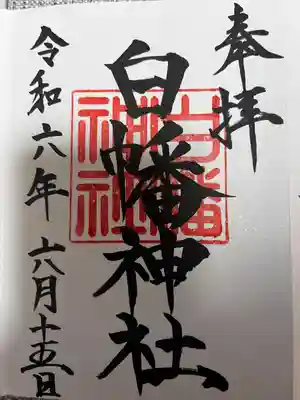 奉拝
白幡神社
白幡神社
令和六年 六月十五日